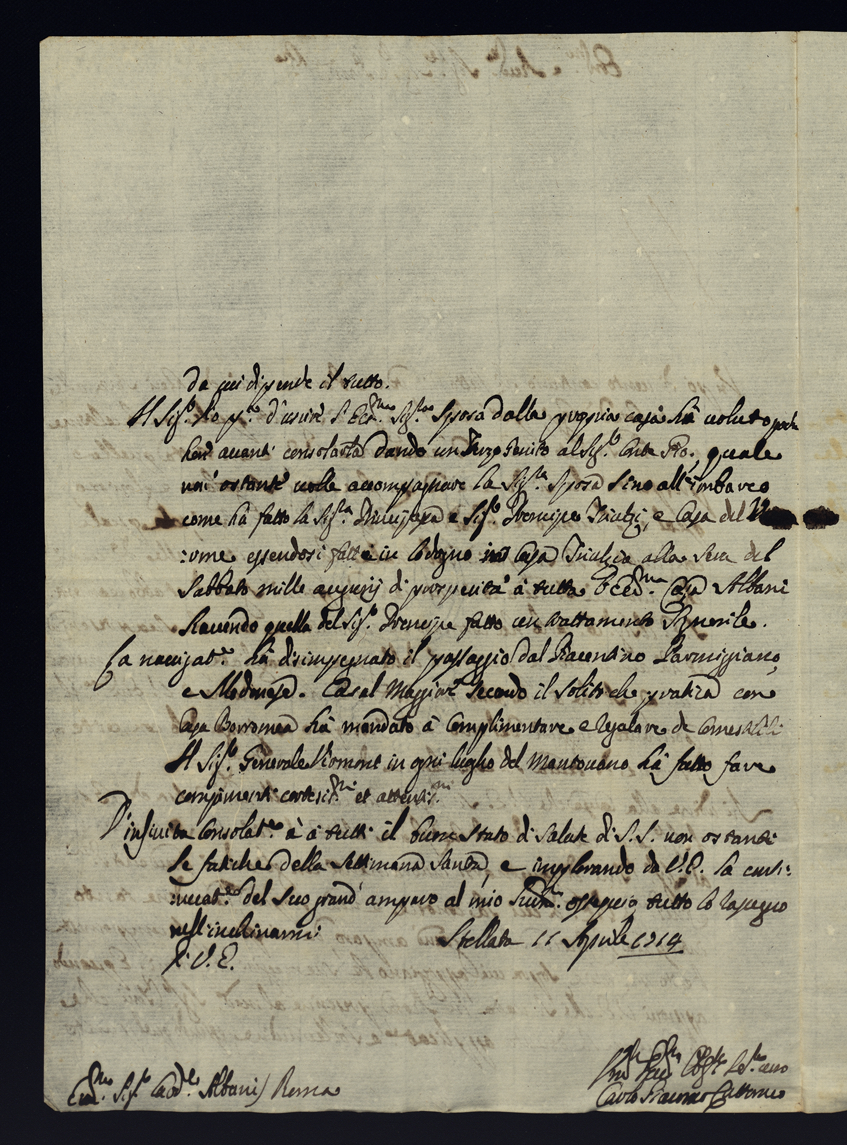 da cui dipende il tutto.
Il Sig.r d'uscire l'Ecc.ma Sig.ra Sposa dalla propria casa hà voluto poche
avanti consolarla dando un al Sig.r Conte Pio, quale
non' ostante volle accompagnare la Sig.ra Sposa sino all'imbarco
come hà fatto la Sig.ra Principessa e Sig.r Prencipe Triulzi, e Casa del
:ume essendosi fatte in Codogno in Casa Triulzia alla sera del
Sabbato mille augurij di prosperità à tutta l'Ecc.ma Casa Albani
havendo quella del Sig.r Prencipe fatto un trattamento Signorile.
La navigat.ne hà disimpegnato il passaggio dal Piacentino Parmiggiano,
e Modenese. Casal Maggior secondo il solito che pratica con
Casa Borromea hà mandato à complimentare e regalare de Comestibili
Il Sig.r Generale in ogni luogho del Mantovano hà fatto fare
complimenti cortesis.mi et attentis.mi
D'infinita Consolat.ne è à tutti il buon stato di salute di S.S. non ostanti
le fatiche della Settimana Santa, e implorando da V.E. la conti:
nuat.ne del suo grand' amparo al mio tutto l'ossequio
nell'inchinarmi
Stellata 11 Aprile 1714
D. V. E.
Em.mo Sig.r Card.le Albani / Roma
Um.mo Dev.mo Obg.mo Ser.re vero
Carlo Cattaneo